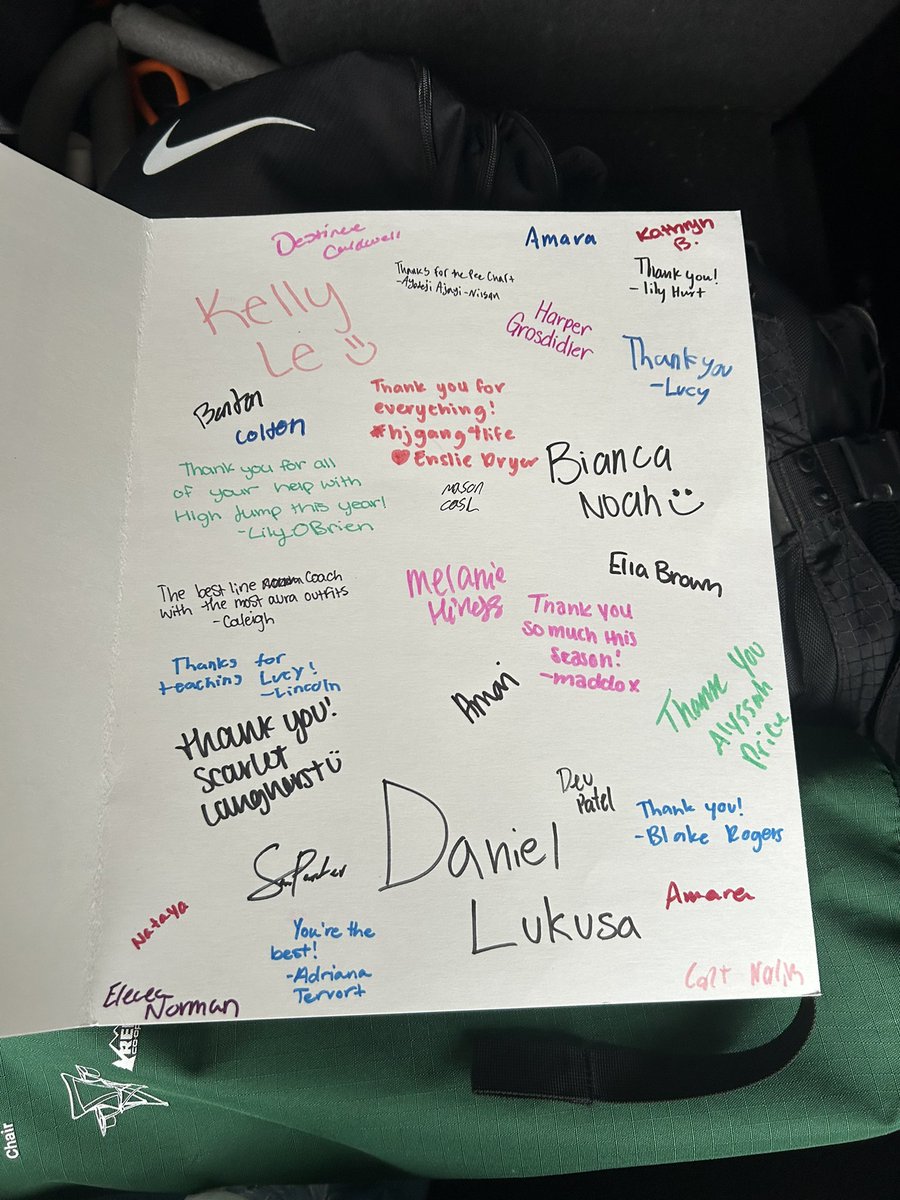 Destinee
Caldwell
Amara
Kathryn
B.
Thanks for the Pee Chart
Thank you!
- Lily Hurt
Kelly
Le
Harper
Grosdidler
Thank you
-Lucy
Barton
Colton
Thank you for
everything!
#hjgang4life
Enslie Dryer
Bianca
Noah
Thank you for all
of your help with
High Jump this year!
-Lily OBrien
mason
The best line Coach
with the most aura outfits
-Caleigh
Melanie
Hines
Ella Brown
Thank you
so much this
season!
-maddox
Thanks for
teaching Lucy!
-Lincoln
Amari
Thank You
Alyssah
Price
Thank you!
Scarlet
Langhorst
Dev
Patel
Daniel
Lukusa
Thank you!
-Blake Rogers
Amara
Nataya
You're the
best!
-Adriana
Tervort
Norman
REI
CO-OP
chair